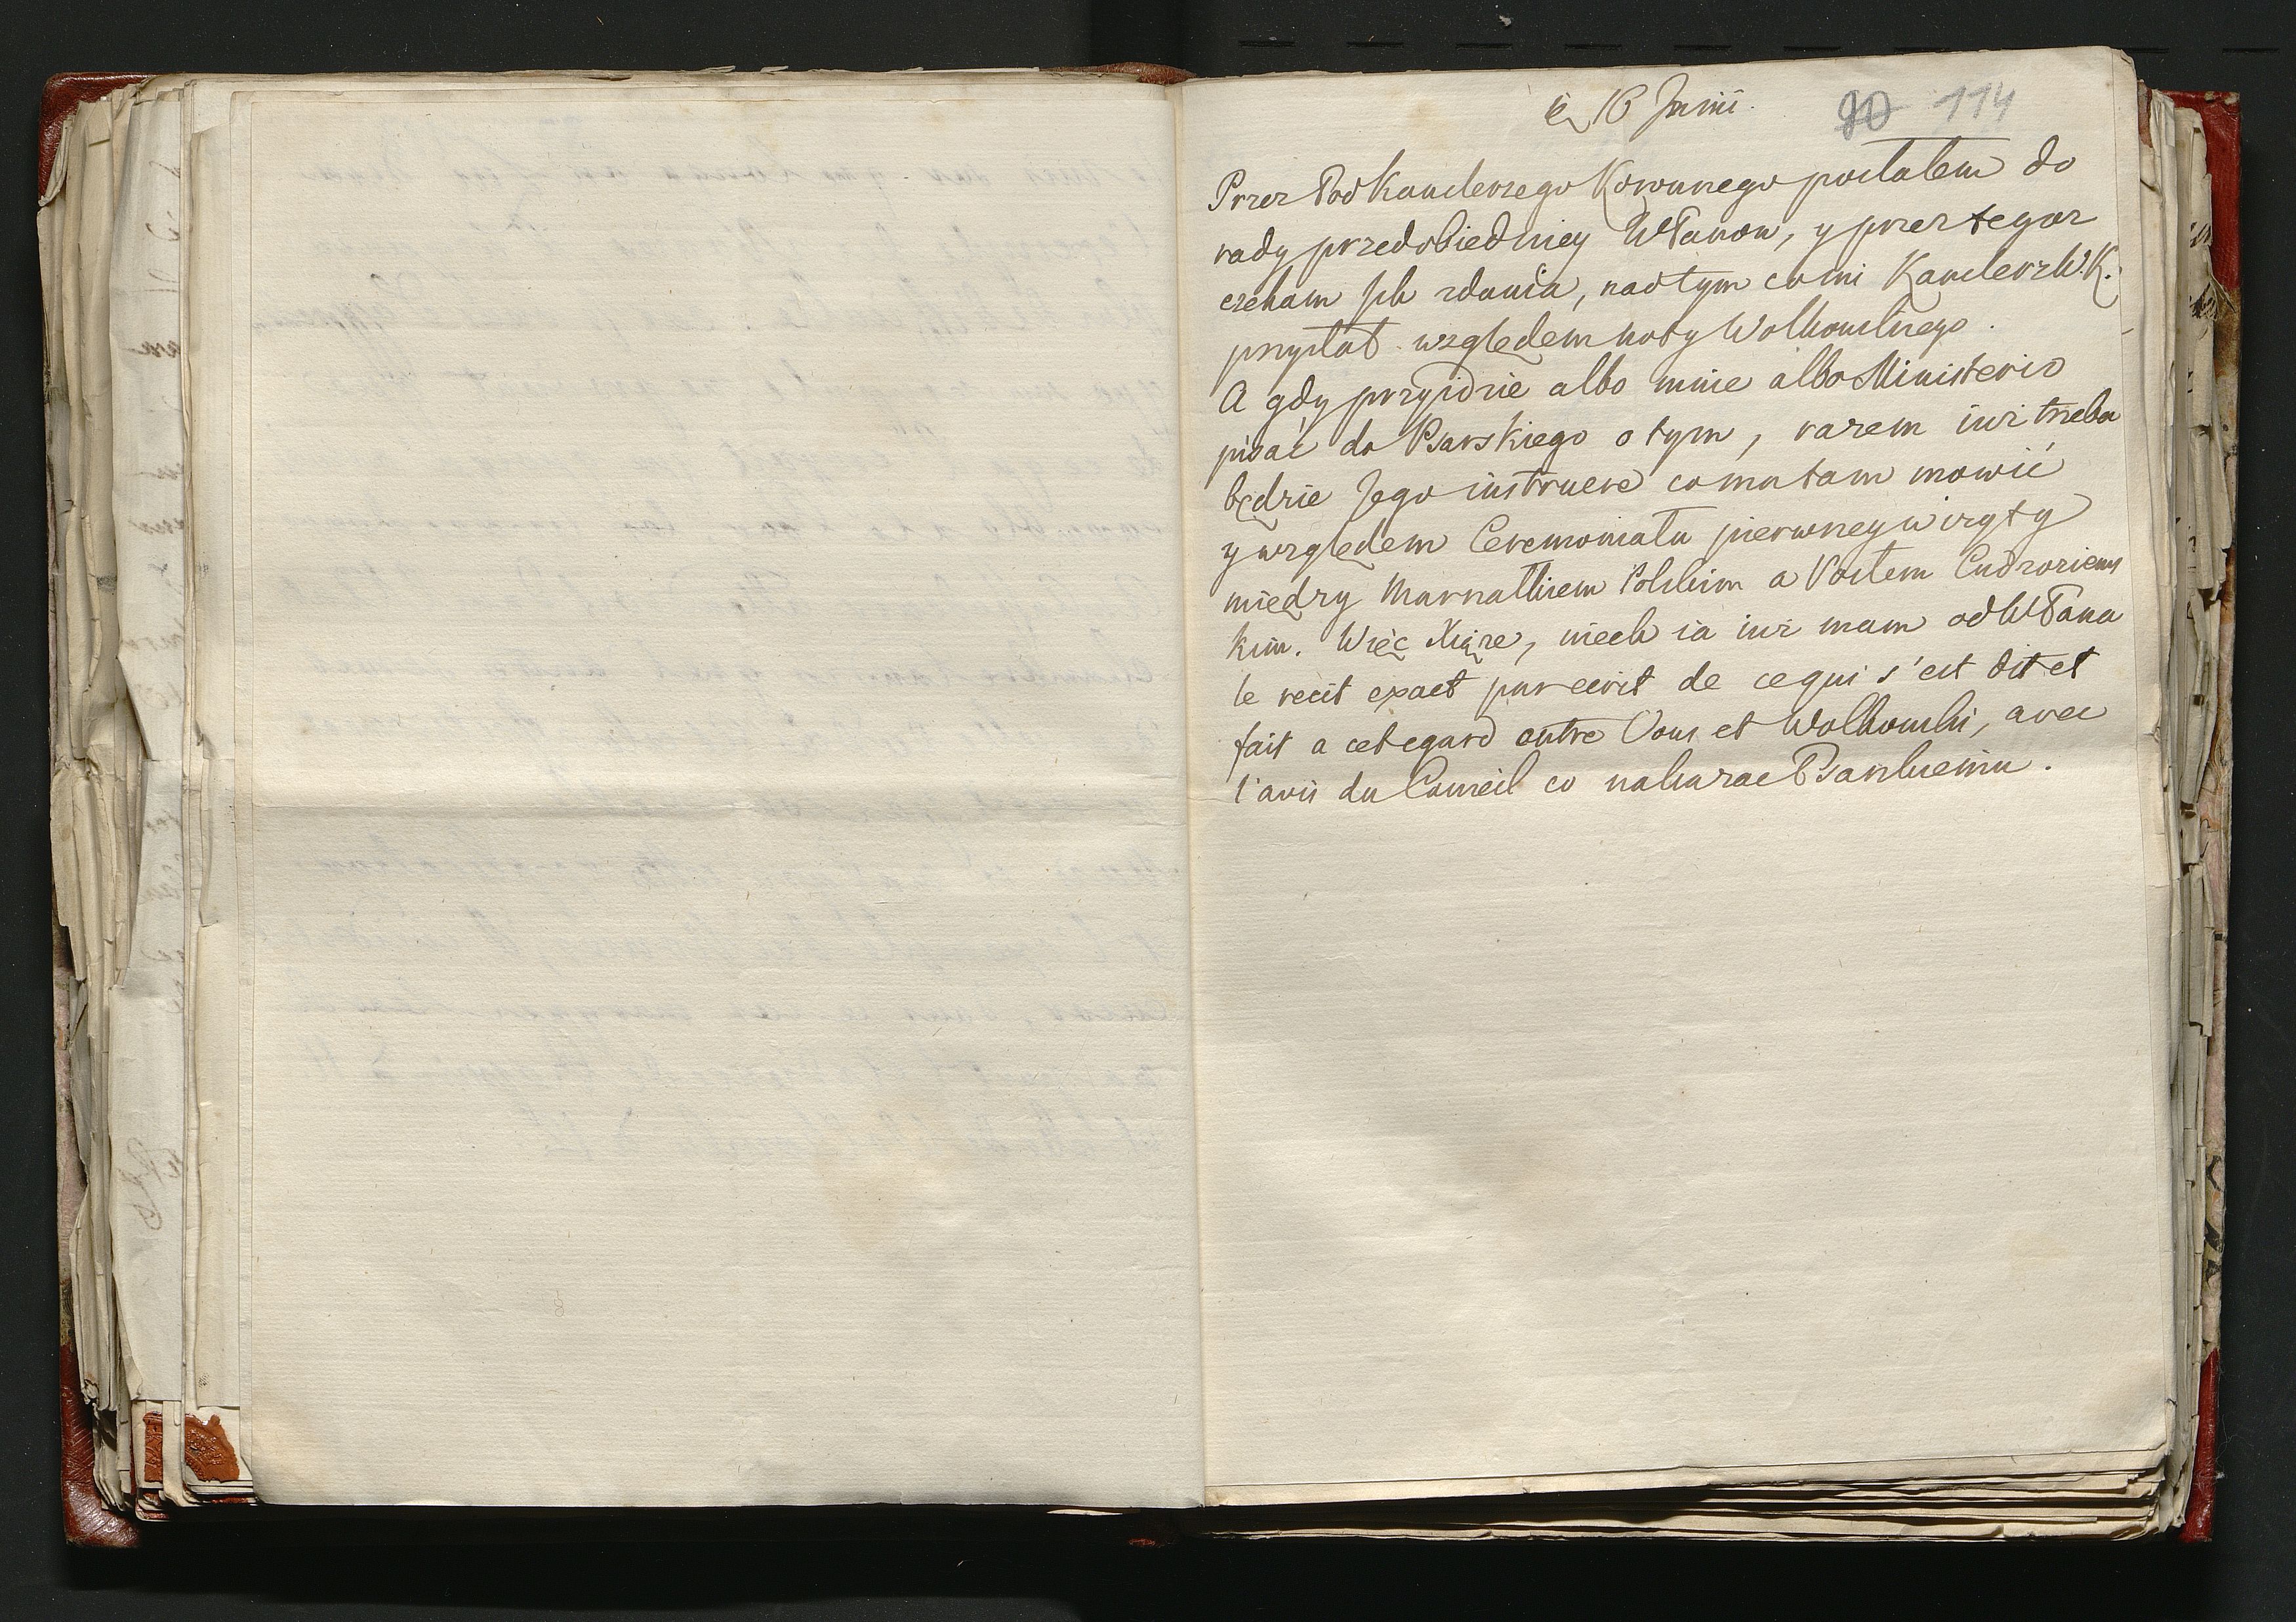 è 16 Junii. 90 114
Przez Podkanclerzego Koronnego posłałem do
rady przedobiedniey WPanow, y przez tegoz
czekam ich zdania, nad tym co mi Kanclerz W.K.
przysłał względem noty Wolkonskiego.
A gdy przyidzie albo mnie albo Ministerio
pisać do Psarskiego o tym, razem iuż trzeba
będzie Jego instruere co ma tam mowić
y względem Ceremoniału pierwszey wizyty
między Marszałkiem Polskim a Posłem Cudzoziems
kim. Więc Xiąze, niech ia iuż mam od WPana
le recit exact par ecrit de ce qui s'est dit et
fait a cet egard entre Vous et Wolkonski, avec
l'avis du Conseil co nakazac Psarskiemu.